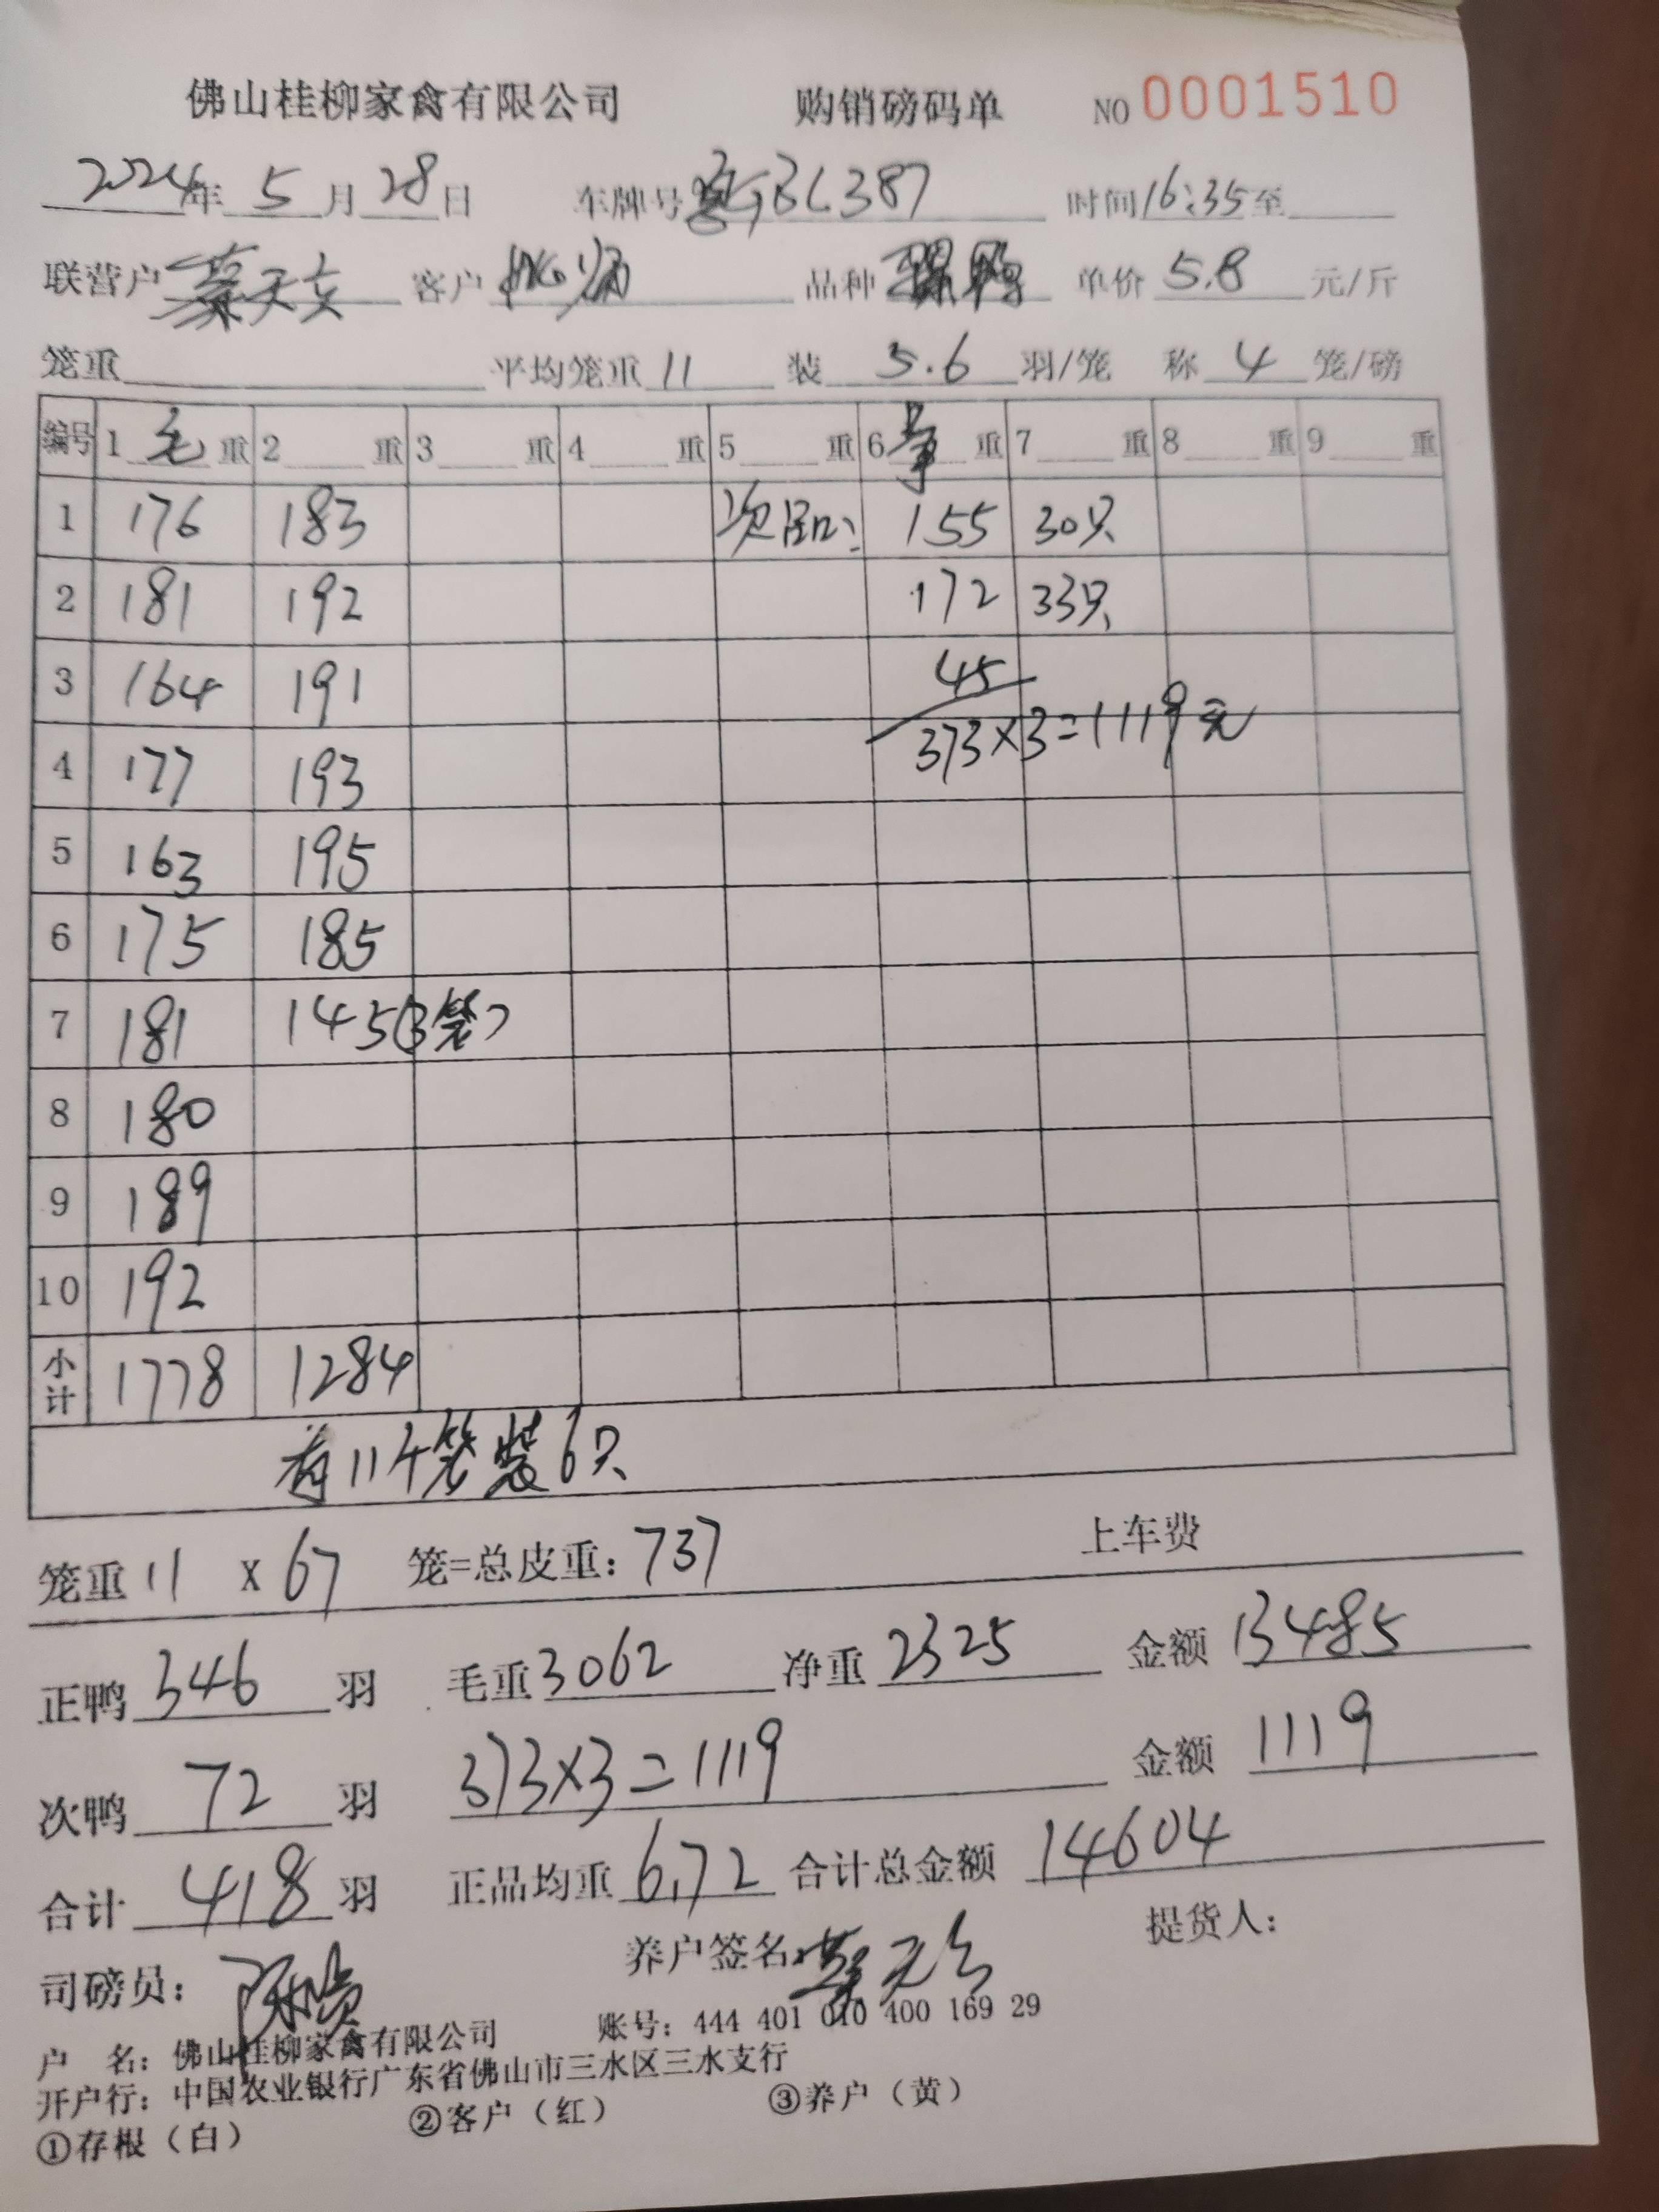 佛山桂柳家禽有限公司 购销磅码单 NO 0001510
2024年 5 月 28 日 车牌号 BL387 时间 16:35 至
联营户 客户 品种 单价 5.8 元/斤
笼重 平均笼重 11 装 5.6 羽/笼 称 4 笼/磅
编号 1 毛 重 2 重 3 重 4 重 5 重 6 净 重 7 重 8 重 9 重
1 176 183 次品: 155 30只
2 181 192 172 33只
3 164 191 45
4 177 193 373×3=1119元
5 163 195
6 175 185
7 181 145(3笼)
8 180
9 189
10 192
小计 1778 1284
有11个笼装6只
笼重 11 x 67 笼=总皮重: 737 上车费
正鸭 346 羽 毛重 3062 净重 2325 金额 13485
次鸭 72 羽 373×3=1119 金额 1119
合计 418 羽 正品均重 6.72 合计总金额 14604
司磅员: 养户签名: 提货人:
户 名: 佛山桂柳家禽有限公司 账号: 444 401 010 400 169 29
开户行: 中国农业银行广东省佛山市三水区三水支行
①存根(白) ②客户(红) ③养户(黄)